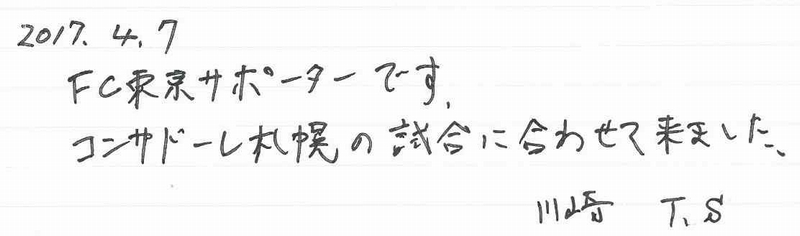 2017. 4. 7
FC東京サポーターです。
コンサドーレ札幌の試合に合わせて来ました。
川崎 T.S